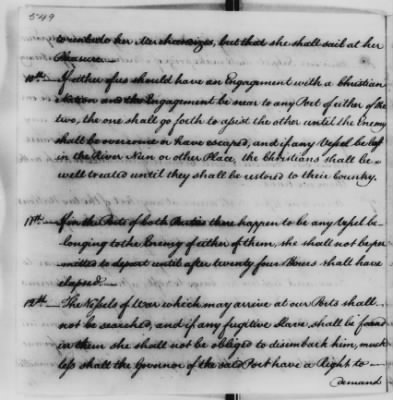 549
to unlade her Merchandizes, but that she shall sail at her
Pleasure.—
10th.— If either of us should have an Engagement with a Christian
Nation and the Engagement be near to any Port of either of the
two, the one shall go forth to assist the other until the Enemy
shall be overcome or have escaped, and if any Vessel be lost
in the River Nun or other Place, the Christians shall be
well treated until they shall be restored to their Country.
11th.— If in the Ports of both Parties there happen to be any Vessel be-
longing to the Enemy of either of them, she shall not be per-
mitted to depart until after twenty four Hours shall have
elapsed.—
12th.— The Vessels of War which may arrive at our Ports shall
not be searched, and if any fugitive Slave, shall be found
in them she shall not be obliged to disimbark him, much
less shall the Governor of the said Port have a Right to—
demand